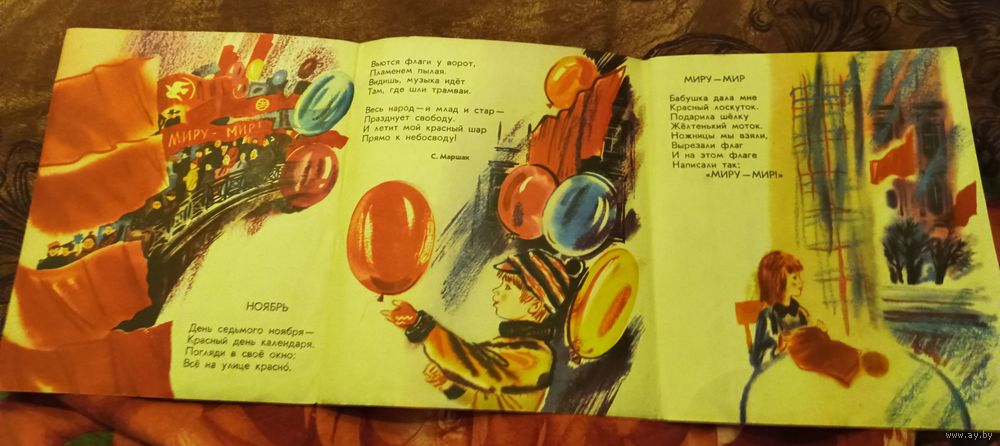 МИРУ - МИР!
НОЯБРЬ
День седьмого ноября—
Красный день календаря.
Погляди в своё окно:
Всё на улице красно́.
Вьются флаги у ворот,
Пламенем пылая.
Видишь, музыка идёт
Там, где шли трамваи.
Весь народ—и млад и стар—
Празднует свободу.
И летит мой красный шар
Прямо к небосводу!
С. Маршак
МИРУ—МИР
Бабушка дала мне
Красный лоскуток.
Подарила шёлку
Жёлтенький моток.
Ножницы мы взяли,
Вырезали флаг
И на этом флаге
Написали так:
«МИРУ—МИР!»
www.ay.by